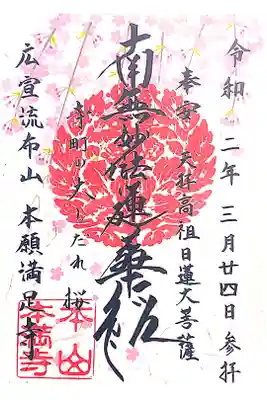 令和二年三月廿四日参拝
奉寳 天拝高祖日蓮大菩薩
南無妙法蓮華経
寺町の
しだれ桜
広宣流布山 本願満足寺
本山
本満寺